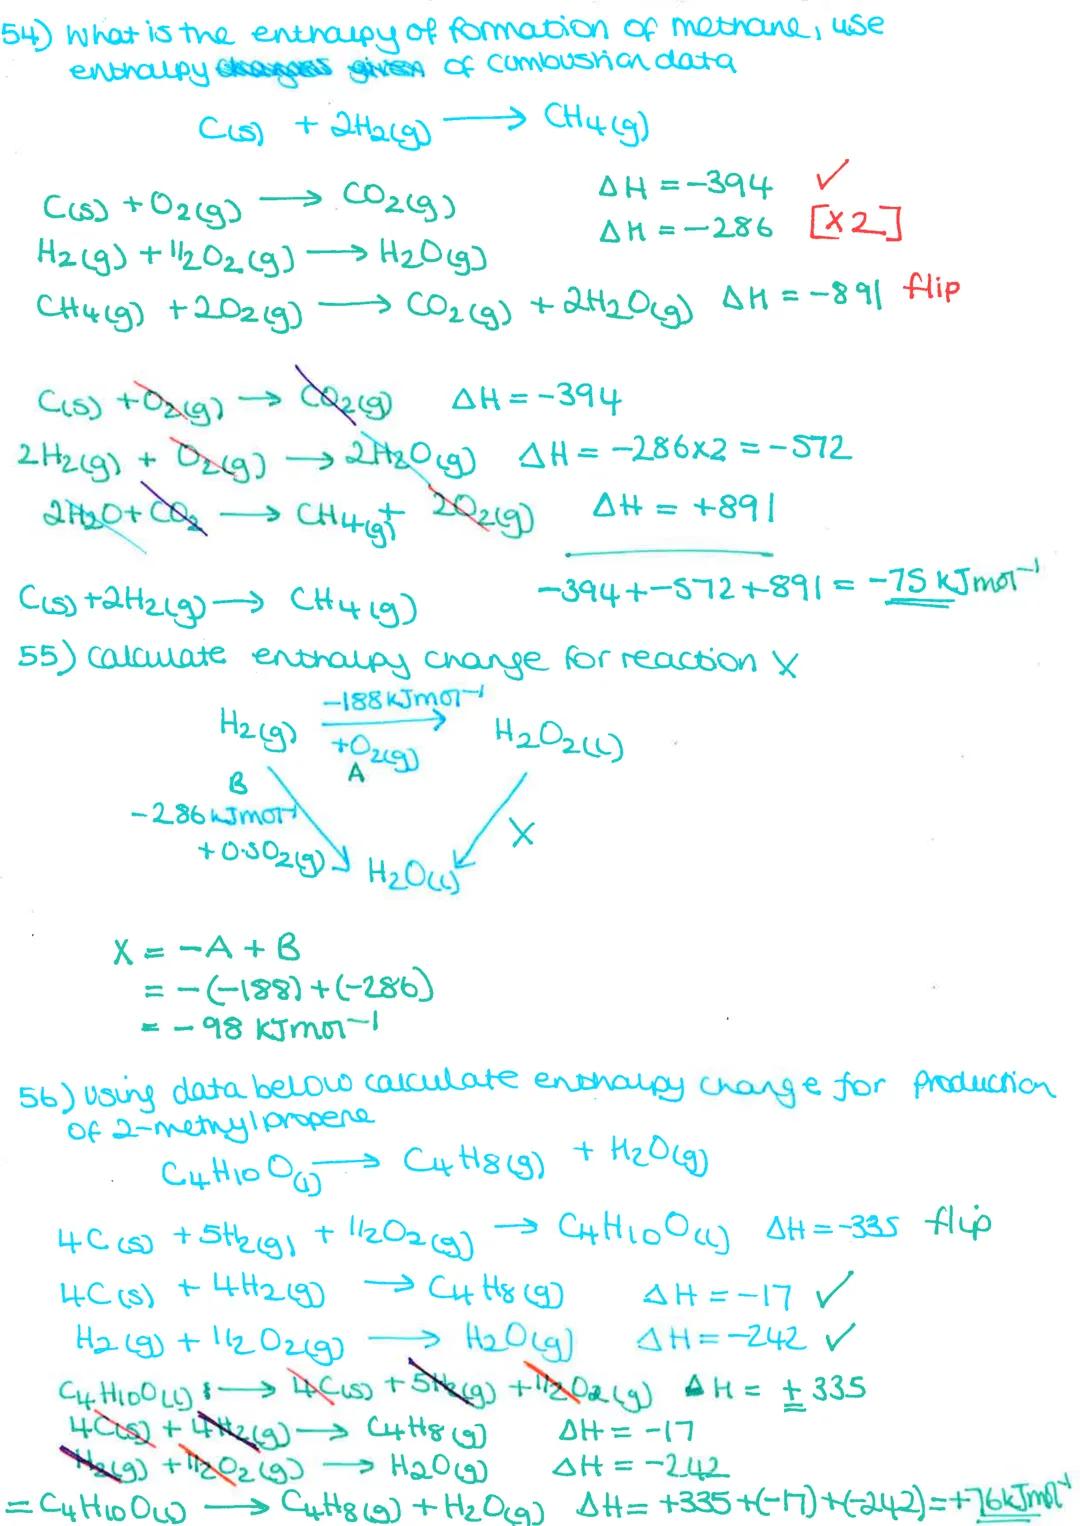 54) What is the enthalpy of formation of methane, use
enthalpy changes given of combustion data
C(s) + 2H2(g) → CH4(g)
C(s) + O2(g) → CO2(g) ΔH = -394 ✓
H2(g) + 1/2O2(g) → H2O(g) ΔH = -286 [x2]
CH4(g) + 2O2(g) → CO2(g) + 2H2O(g) ΔH = -891 flip
C(s) + O2(g) → CO2(g) ΔH = -394
2H2(g) + O2(g) → 2H2O(g) ΔH = -286x2 = -572
2H2O + CO2 → CH4(g) + 2O2(g) ΔH = +891
C(s) + 2H2(g) → CH4(g) -394+-572+891 = -75 kJmol-1
55) Calculate enthalpy change for reaction X
-188kJmol-1
H2(g) → H2O2(l)
+O2(g)
A
B
-286kJmol-1
X
+0.5O2(g)
H2O(l)
X = -A + B
= -(-188)+(-286)
= -98 kJmol-1
56) Using data below calculate enthalpy change for production
of 2-methylpropene
C4H10O(l) → C4H8(g) + H2O(g)
4C(s) + 5H2(g) + 1/2O2(g) → C4H10O(l) ΔH = -335 flip
4C(s) + 4H2(g) → C4H8(g) ΔH = -17 ✓
H2(g) + 1/2O2(g) → H2O(g) ΔH = -242 ✓
C4H10O(l) → 4C(s) + 5H2(g) + 1/2O2(g) ΔH = +335
4C(s) + 4H2(g) → C4H8(g) ΔH = -17
H2(g) + 1/2O2(g) → H2O(g) ΔH = -242
= C4H10O(l) → C4H8(g) + H2O(g) ΔH = +335+(-17)+(-242)=+76kJmol-1